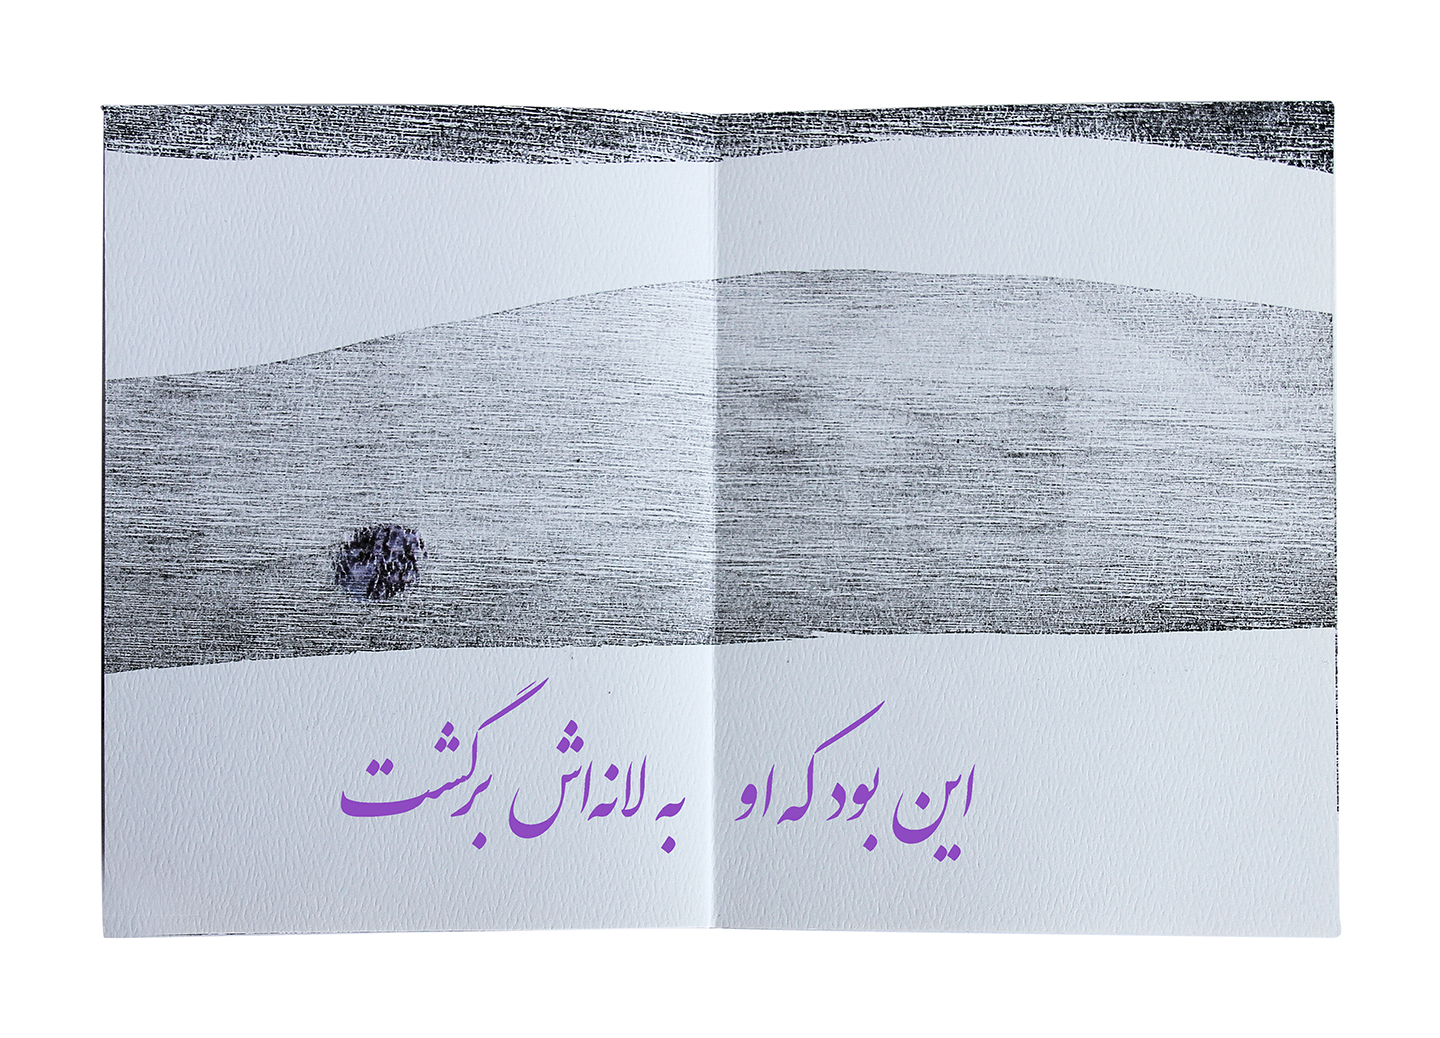 این بود که او به لانه‌اش برگشت